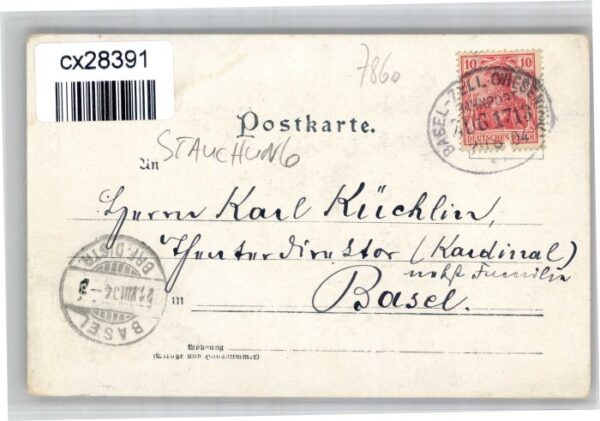 cx28391
7860
10 10
DEUTSCHES REICH
BASEL-ZELL (WIESENTHAL)
BAHNPOST
ZUG 1713
04
Postkarte.
An
STAUCHUNG
Herrn Karl Küchlin,
Theaterdirektor (Kardinal)
nebst Familie
in Basel.
BRF. DISTR.
VIII.04
BASEL
Wohnung
(Straße und Hausnummer)